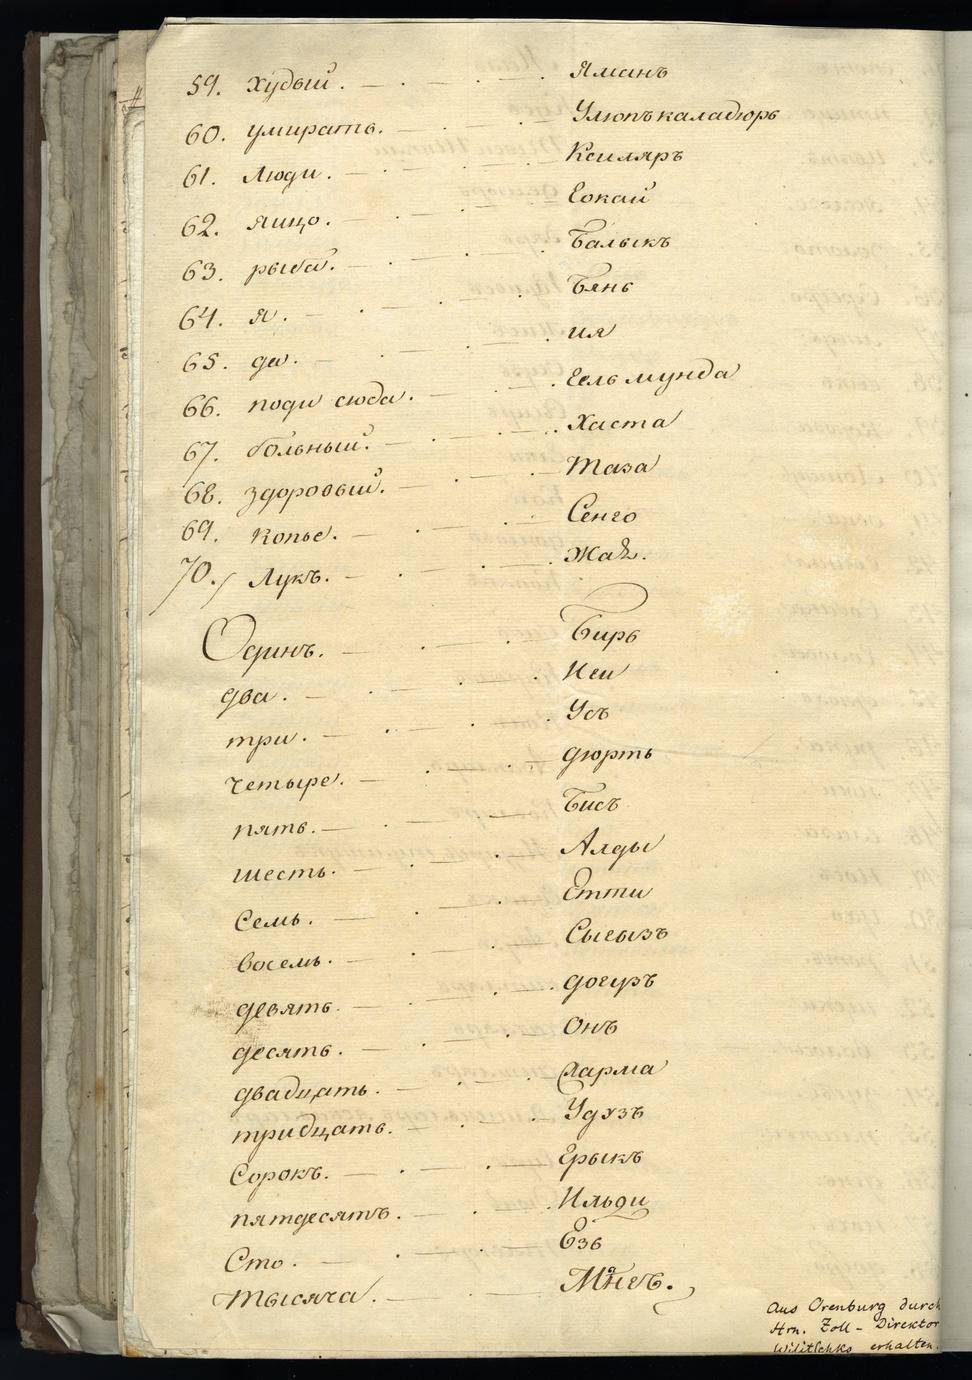 59. худый. Яманъ
60. умирать. Улюпъ каладюрь
61. Люди. Кешляръ
62. яицо. Еокай
63. рыба. Балыкъ
64. я. Бянь
65. да. ия
66. поди сюда. Еель мунда
67. больный. Хаста
68. здоровый. Таза
69. Копье. Сенго
70. Лукъ. Жая.
Одинъ. Бирь
два. Иеи
три. Усъ
четыре. дюрть
пять. Бисъ
шесть. Алды
Семь. Етти
восемь. Сыеызъ
девять. доеузъ
десять. Онъ
двадцать. Еарма
тридцать. Удузъ
Сорокъ. Ерыкъ
пятдесятъ. Ильди
Сто. Езь
Тысяча. Мянеъ.
Aus Orenburg durch
Hrn. Zoll-Direktor
Wilitschko erhalten.